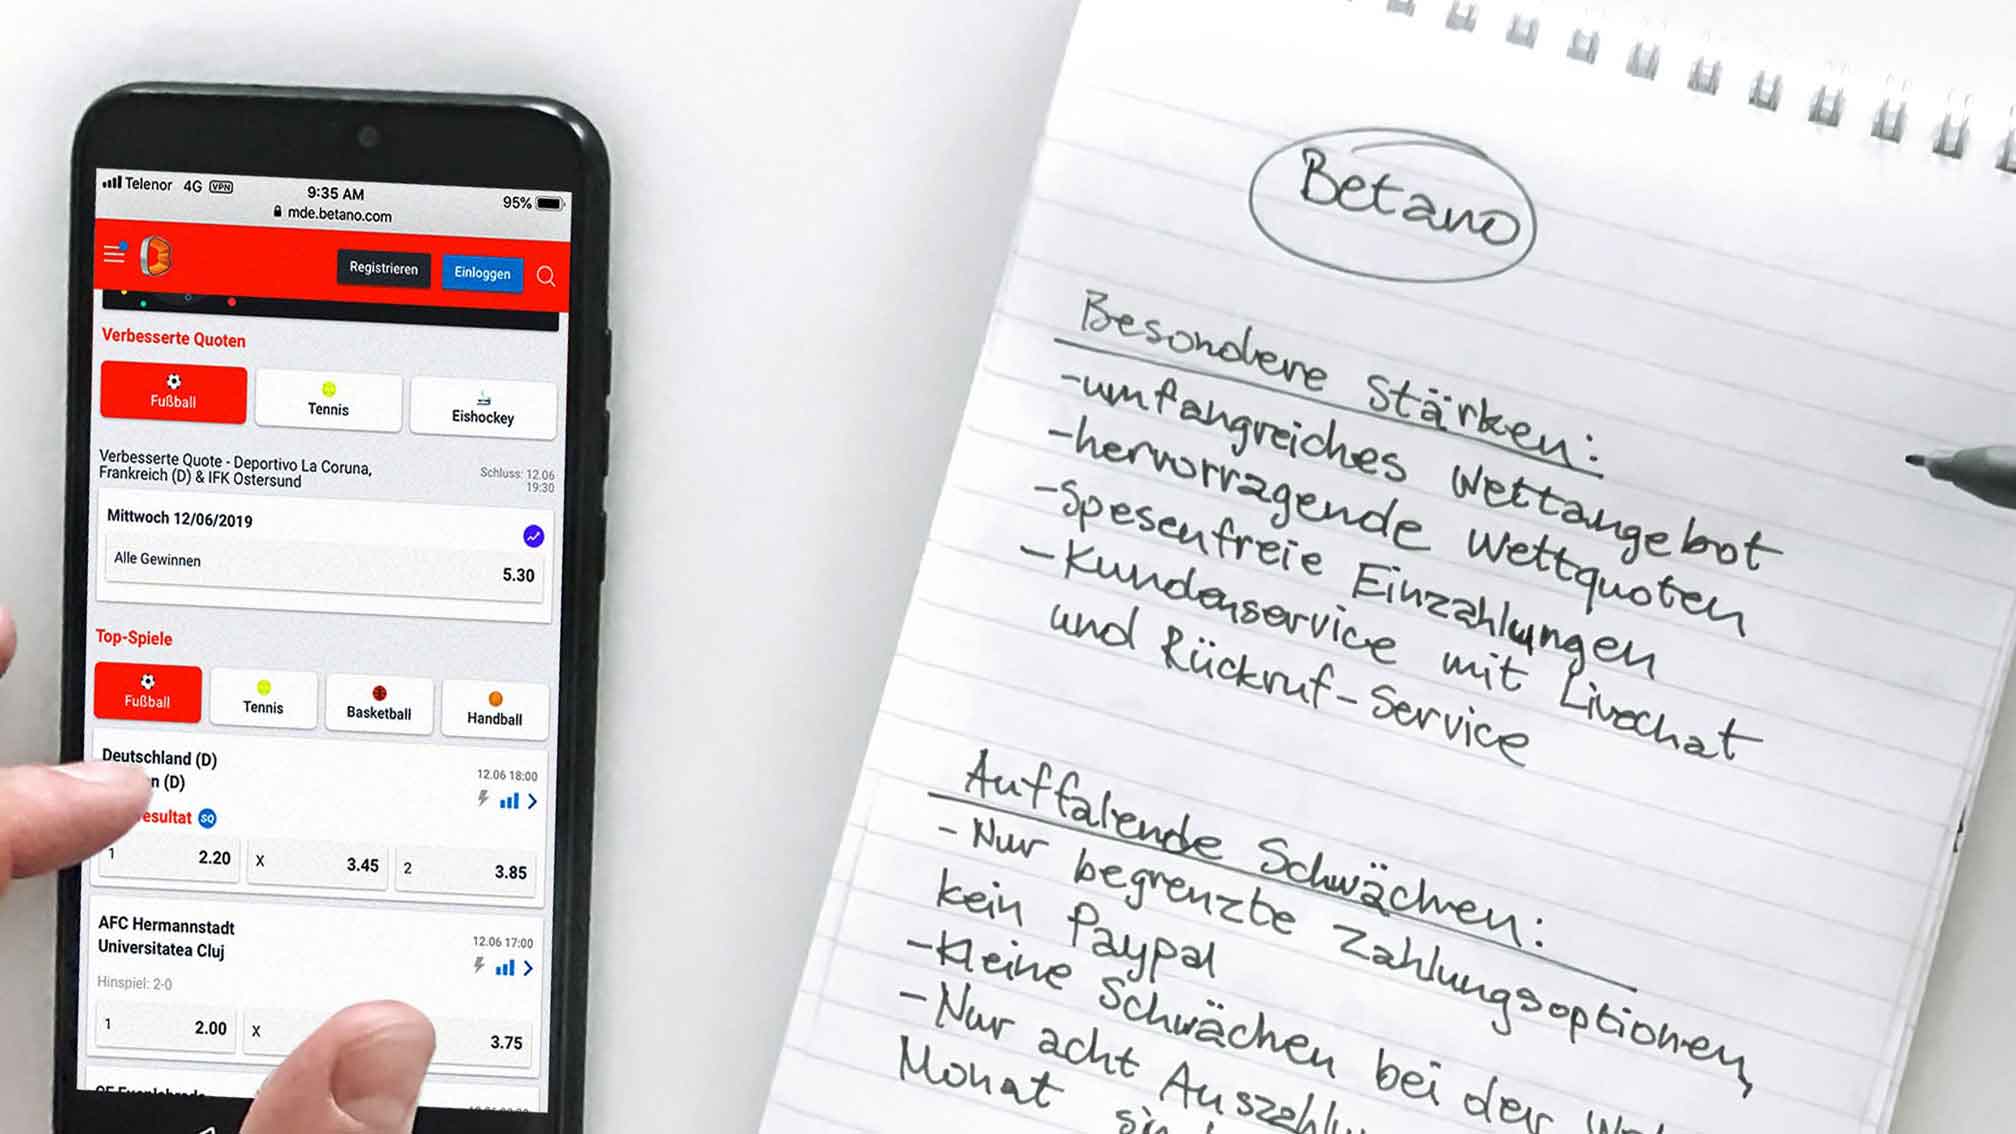 Telenor 4G VPN
9:35 AM
95%
mde.betano.com
Registrieren
Einloggen
Verbesserte Quoten
Fußball
Tennis
Eishockey
Verbesserte Quote - Deportivo La Coruna,
Frankreich (D) & IFK Ostersund
Schluss: 12.06
19:30
Mittwoch 12/06/2019
Alle Gewinnen
5.30
Top-Spiele
Fußball
Tennis
Basketball
Handball
Deutschland (D)
(D)
12.06 18:00
SQ
1 2.20 X 3.45 2 3.85
AFC Hermannstadt
Universitatea Cluj
12.06 17:00
Hinspiel: 2-0
1 2.00 X 3.75
Betano
Besondere Stärken:
- umfangreiches Wettangebot
- hervorragende Wettquoten
- Spesenfreie Einzahlungen
- Kundenservice mit Livechat
und Rückruf-Service
Auffalende Schwächen:
- Nur begrenzte Zahlungsoptionen,
kein Paypal
- Kleine Schwächen bei der
- Nur acht
Monat